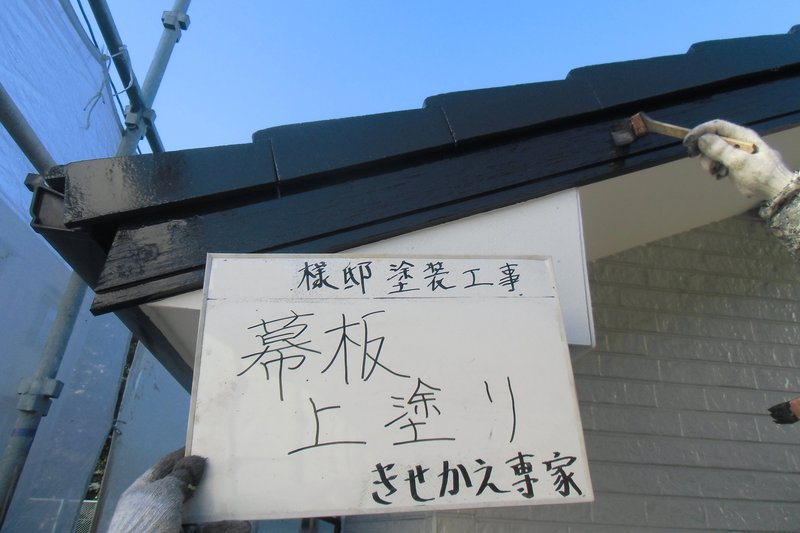 様邸塗装工事
幕板
上塗り
きせかえ専家